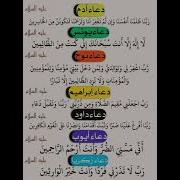 دعاء آدم عليه السلام
رَبَّنَا ظَلَمْنَا أَنفُسَنَا وَإِن لَّمْ تَغْفِرْ لَنَا وَتَرْحَمْنَا لَنَكُونَنَّ مِنَ الْخَاسِرِينَ
دعاء يونس عليه السلام
لَّا إِلَهَ إِلَّا أَنتَ سُبْحَانَكَ إِنِّي كُنتُ مِنَ الظَّالِمِينَ
دعاء نوح عليه السلام
رَبِّ اغْفِرْ لِي وَلِوَالِدَيَّ وَلِمَن دَخَلَ بَيْتِيَ مُؤْمِنًا وَلِلْمُؤْمِنِينَ
وَالْمُؤْمِنَاتِ وَلَا تَزِدِ الظَّالِمِينَ إِلَّا تَبَارًا
دعاء ابراهيم عليه السلام
رَبِّ اجْعَلْنِي مُقِيمَ الصَّلَاةِ وَمِن ذُرِّيَّتِي رَبَّنَا وَتَقَبَّلْ دُعَاءِ
دعاء داود عليه السلام
رَبَّنَا أَفْرِغْ عَلَيْنَا صَبْرًا وَثَبِّتْ أَقْدَامَنَا وَانصُرْنَا عَلَى الْقَوْمِ الْكَافِرِينَ
دعاء أيوب عليه السلام
أَنِّي مَسَّنِيَ الضُّرُّ وَأَنتَ أَرْحَمُ الرَّاحِمِينَ
دعاء زكريا عليه السلام
رَبِّ لَا تَذَرْنِي فَرْدًا وَأَنتَ خَيْرُ الْوَارِثِينَ